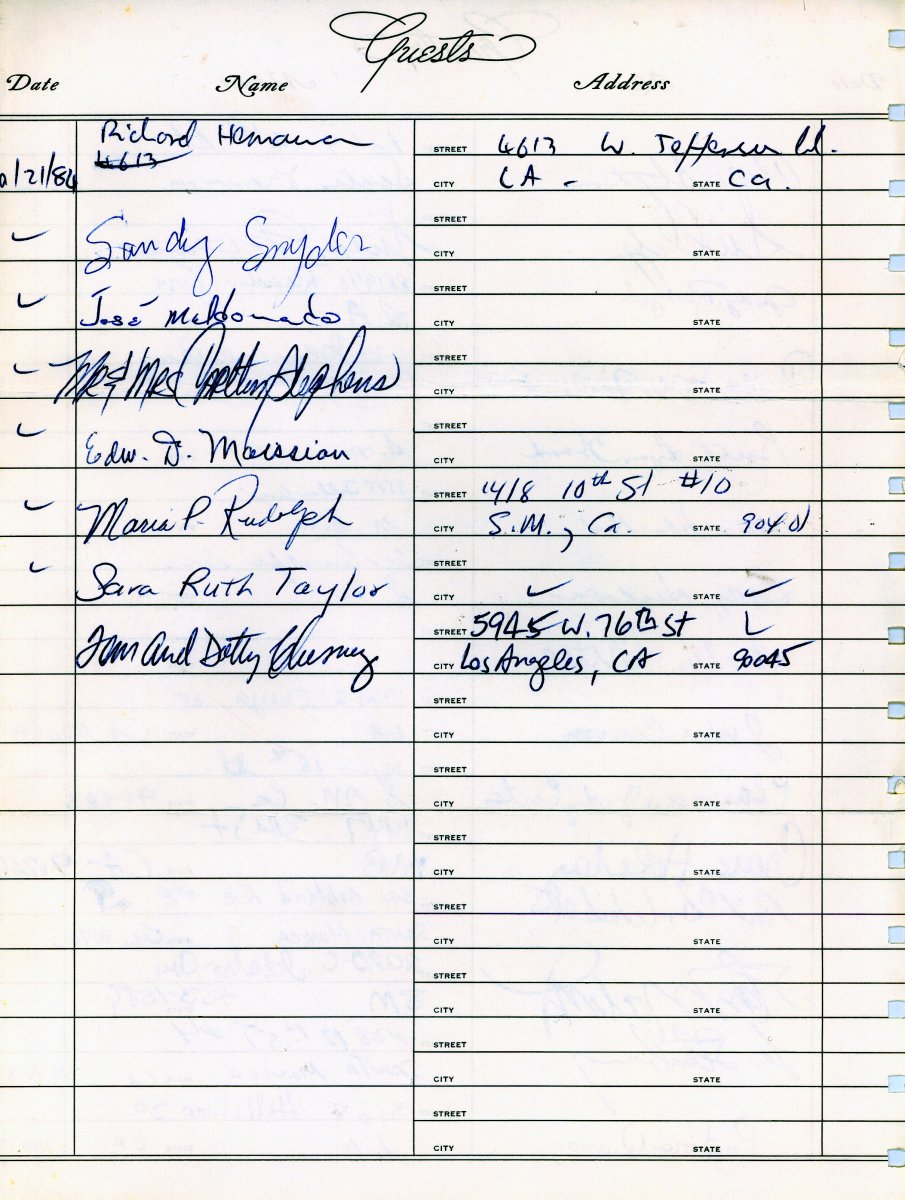 Guests
Date Name Address
Richard STREET 4613 W. Jefferson Bl.
4613
/21/84 CITY LA - STATE Ca.
STREET
✓ Sandy Snyder CITY STATE
STREET
✓ José Maldonado CITY STATE
STREET
✓ Mr & Mrs Stephens CITY STATE
STREET
✓ Edw. D. Maissian CITY STATE
STREET 1418 10th St #10
✓ Maria P. Rudolph CITY S.M., Ca. STATE 90401
STREET
✓ Sara Ruth Taylor CITY ✓ STATE ✓
STREET 5945 W. 76th St L
Tom and Dotty Chesney CITY Los Angeles, CA STATE 90045
STREET
CITY STATE
STREET
CITY STATE
STREET
CITY STATE
STREET
CITY STATE
STREET
CITY STATE
STREET
CITY STATE
STREET
CITY STATE